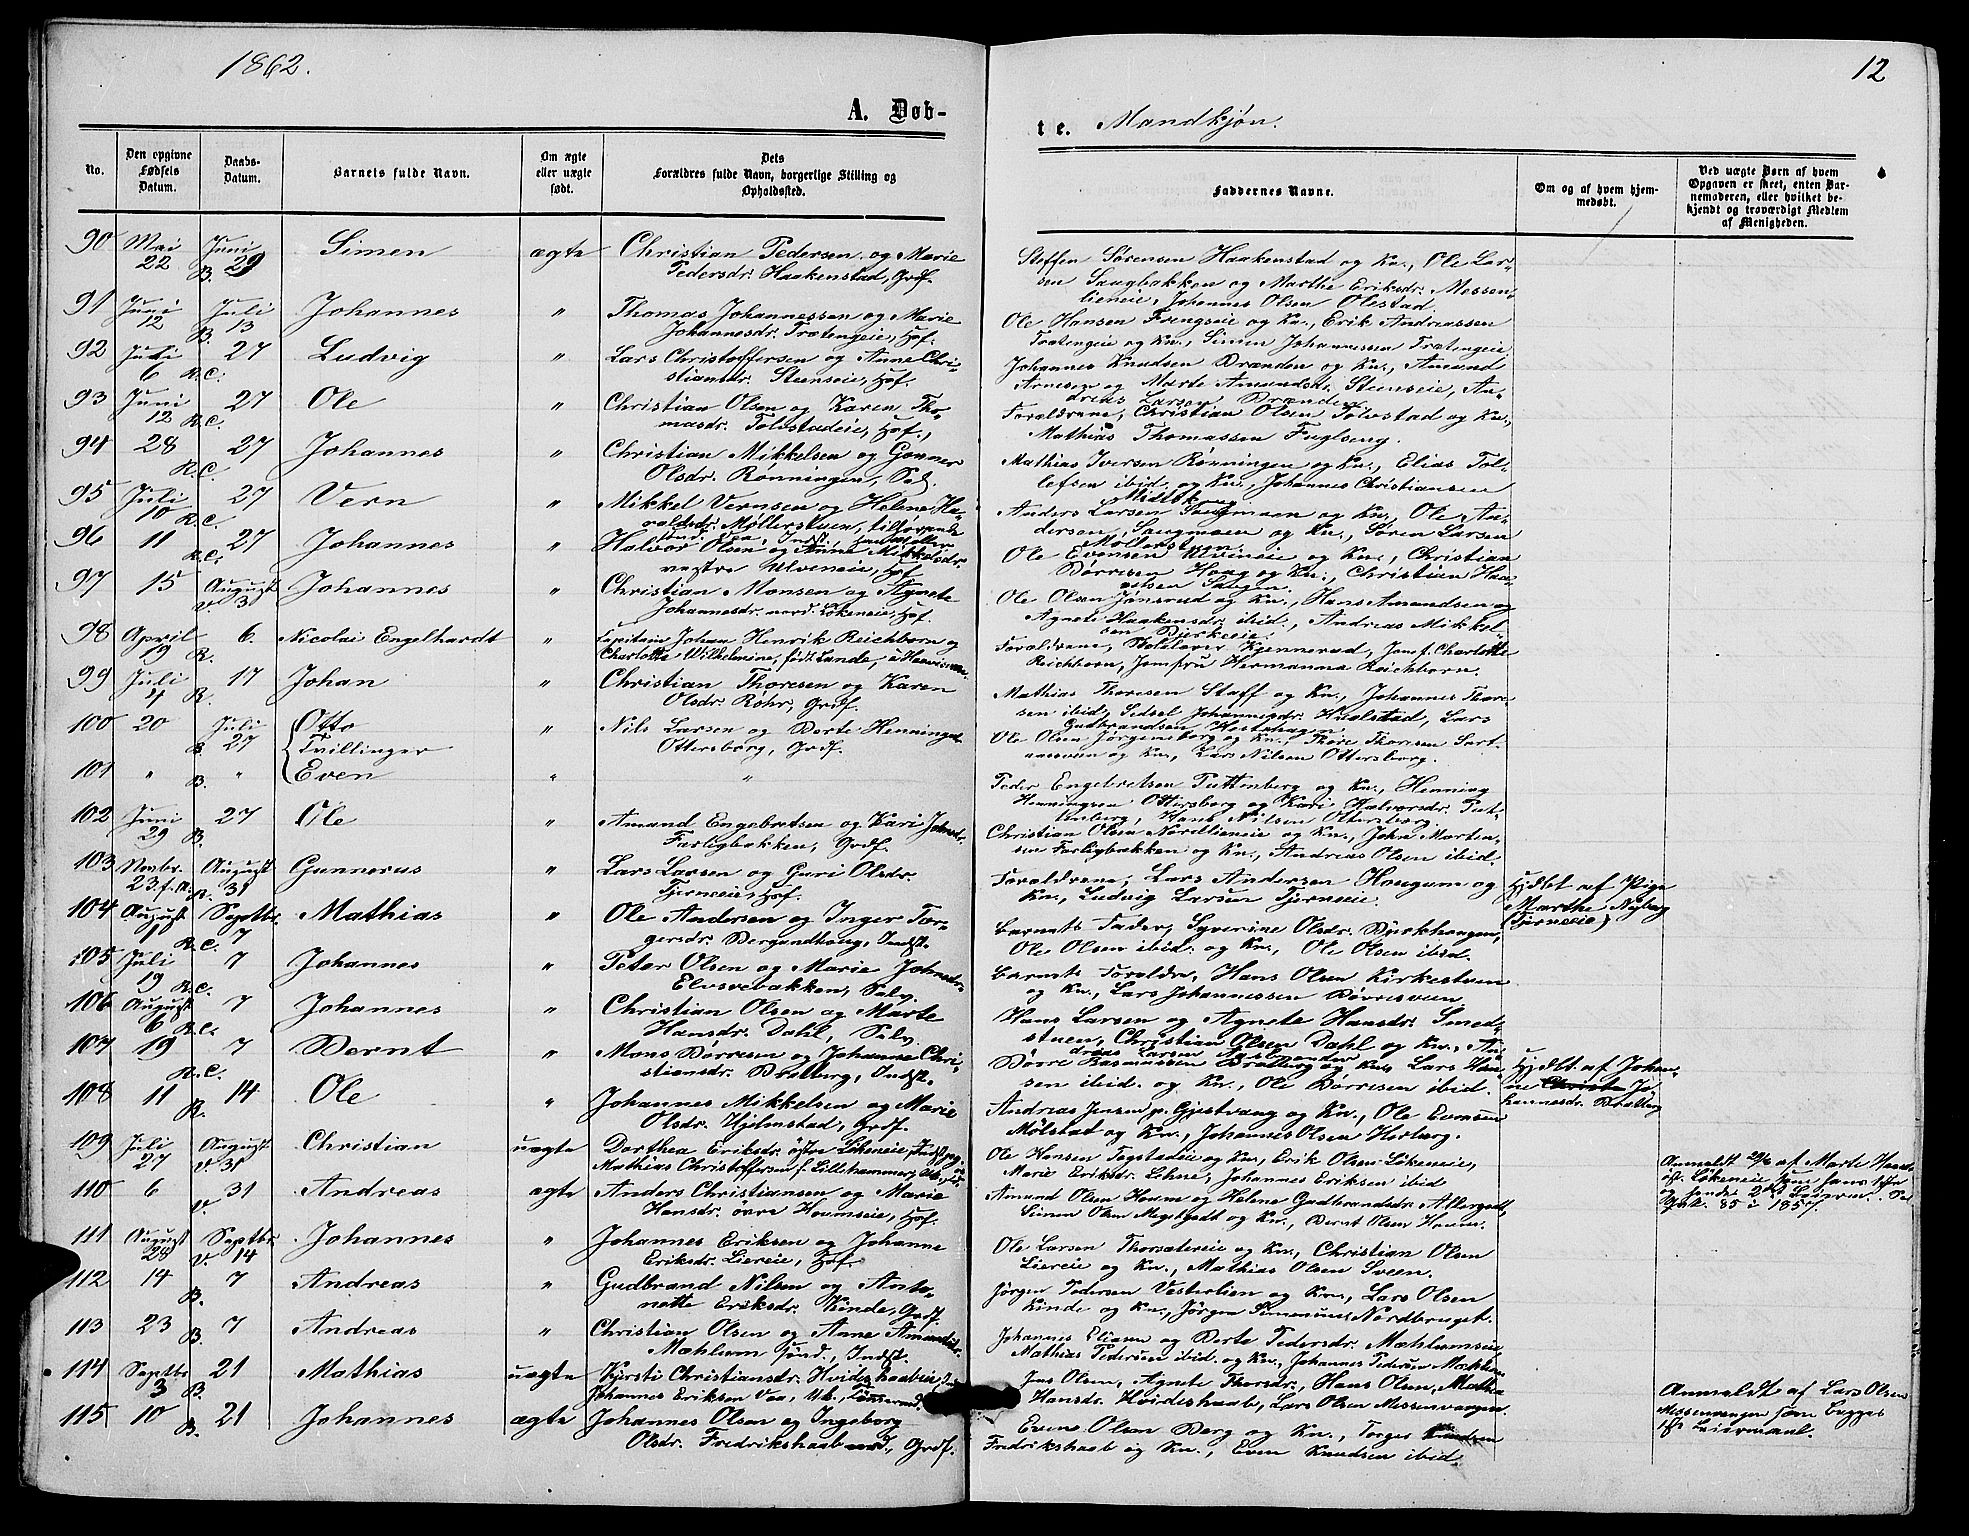 1862.
12
A. Døb-
te. Mandkjøn.
No.
Den opgivne Fødsels Datum.
Daabs-Datum.
Barnets fulde Navn.
Om ægte eller uægte født.
Dets Forældres fulde Navn, borgerlige Stilling og Opholdssted.
Faddernes Navne.
Om og af hvem hjemmedøbt.
Ved uægte Børn af hvem Opgaven er skeet, enten Barnemoderen, eller hvilket bekjendt og troværdigt Medlem af Menigheden.
90 Mai 22 Juni 29 B. Simen ægte Christian Pedersen og Marie
Pedersdr. Haakenstad, Grdf.
Steffen Sørensen Haakenstad og Kn., Ole Lar-
sen Saugbakken og Marthe Eriksdr. Messen-
lieneie, Johannes Olsen Olestad.
91 Juni 12 Juli 13 B. Johannes " Thomas Johannessen og Marie
Johannesdr. Trætengeie, Hof.
Ole Hansen Frengseie og Kn., Erik Andreassen
Trætengeie og Kn., Simen Johannessen Trætengeie.
92 Juli 6 27 R.C. Ludvig " Lars Christoffersen og Anne Chri-
stiansdr. Steenseie, Hof.
Johannes Knudsen Brænden og Kn., Amund
Arnesen og Marte Amundsdr. Steenseie, An-
dreas Larsen Brænden
93 Juni 12 27 R.C. Ole " Christian Olsen og Karen Tho-
masdr. Tolvstadeie, Hof.,
Forældrene, Christian Olsen Tolvstad og Kn.,
Mathias Thomassen Fuglseng.
94 28 27 R.C. Johannes " Christian Mikkelsen og Gonner
Olsdr. Rønningen, Sel.
Mathias Iversen Rønningen og Kn., Elias Tol-
lefsen ibid. og Kn., Johannes Christiansen
95 Juli 10 27 R.C. Vern " Mikkel Vernsen og Helene Ha-
raldsdr. Møllerstuen,
Anders Larsen Saugmoen og Kn., Ole An-
dersen, Saugmoen og Kn., Søren Larsen
Møllerstuen.
96 11 27 R.C. Johannes " Halvor Olsen og Anne Mikkelsdr.
vestre Ulveneie, Hof
Ole Evensen Ulveneie og Kn., Christian
Børresen Haug og Kn., Christian Haa-
97 15 August 3 V. Johannes " Christian Monsen og Agnete
Johannesdr. nord. Løkeneie, Hof.
Ole Olsen Jønsrud og Kn., Hans Amundsen og
Agnete Haakensdr. ibid., Andreas Mikkel-
sen Bjerkeeie.
98 April 19 6. R. Nicolai Engelhardt " Capitain Johan Henrik Reichborn og
Charlotte Wilhelmine, født Lunde,
Forældrene, Kjennerud, Jomf. Charlotte
Reichborn, Jomfru Hermanna Reichborn.
99 Juli 4 17 R. Johan " Christian Thoresen og Karen
Olsdr. Røhr, Grdf.
Mathias Thoresen Staff og Kn., Johannes Thore-
sen ibid, Sidsel Johannesdr. Hualstad, Lars
Gudbrandsen Hestehagen
100 20 Juli 27 B. Otto " Nils Larsen og Berte Henningsdr.
Tvillinger
Ottersborg, Grdf.
Ole Olsen Jørgensborg og Kn., Thore Thoresen
og Kn., Lars Nilsen Ottersborg.
101 " " B. Even " "
Peder Engebretsen Puttenberg og Kn., Henning
Henningsen Ottersborg og Kari Halvorsdr. Put-
tenberg, Hans Nilsen Ottersborg.
102 Juni 29 27 B. Ole " Amund Engebretsen og Kari Johnsdr.
Farligbakken, Grdf.
Christian Olsen Nordlieneie og Kn., John Morten-
sen Farligbakken og Kn., Andreas Olsen ibid.
103 Novbr. 23. f.A. August 31 R. Gunnerus " Lars Larsen og Guri Olsdr.
Fjerneeie, Hof.
Forældrene, Lars Andersen Hougum og
Kn., Ludvig Larsen Tjerneeie.
Hjdbt af Pige
Marthe Nyberg
(Tjerneeie)
104 August 1 Septbr. 7 R.C. Mathias " Ole Andersen og Inger Tor-
gersdr. Bergundhaug, Indst.
Barnets Fader, Syverine Olsdr. Birkehaugen,
Ole Olsen ibid. og Kn., Ole Olsen ibid.
105 Juli 19 7 R.C. Johannes " Peter Olsen og Marie Johnsdr.
Elvsvebakken, Selv.
Barnets Forældre, Hans Olsen Kirkestuen
og Kn., Lars Johannessen Børresveen
106 August 6 7 R.C. Johannes " Christian Olsen og Marte
Hansdr. Dahl, Selv.
Hans Larsen og Agnete Hansdr. Smed-
stuen, Christian Olsen Dahl og Kn., An-
dreas Larsen
107 19 7 R.C. Bernt " Mons Børresen og Johanne Chri-
stiansdr. Bratberg, Indst.
Børre Rasmussen Bratberg og Kn., Lars Han-
sen ibid. og Kn., Ole Børresen ibid.
Hjdbt af Johan-
ne Christi Jo-
hannesdr. Bratberg
108 11 14 R. Ole " Johannes Mikkelsen og Marie
Olsdr. Hjelmstad, Grdf.
Andreas Jensen p. Gjestvang og Kn., Ole Evensen
Mølstad og Kn., Johannes Olsen Herberg.
109 Juli 27 August 31 V. Christian uægte Dorthea Eriksdr. østre Løkeneie, Indst. og
Mathias Christoffersen f. Lillehammer,
Ole Hansen Fogstadeie og Kn., Erik Olsen Løkeneie,
Marie Eriksdr. Lehne, Johannes Eriksen ibid
Anmeldt 29/6 af Marte Hansdr.
øst. Løkeneie som hans 1ste
og hendes 2det Leierm. Se
85 i 1857.
110 6 31 V. Andreas ægte Anders Christiansen og Marie
Hansdr. øvre Houmseie, Hof.
Amund Olsen Houm og Helene Gudbrandsdr. Alkergodt,
Simen Olsen Megelgodt og Kn., Bernt Olsen Houm.
111 August 28 Septbr. 14 V. Johannes " Johannes Eriksen og Johanne
Eriksdr. Liereie, Hof
Ole Larsen Thorsætereie og Kn., Christian Olsen
Liereie og Kn., Mathias Olsen Sveen.
112 14 7 B. Andreas " Gudbrand Nilsen og Anto-
nette Eriksdr. Kinde, Grdf.
Jørgen Pedersen Vesterlien og Kn., Lars Olsen
Kinde og Kn., Jørgen Simensens Nordbruget.
113 23 7 B. Andreas " Christian Olsen og Anne Amundsdr.
Mæhlum sønd., Indst.
Johannes Eliasen og Berte Pedersdr. Mæhlumseie,
Mathias Pedersen ibid. og Kn., Johannes Pedersen Mæhlum
114 Septbr. 3 21 B. Mathias uægte Kjersti Christiansdr. Hvideshaabeie,
Johannes Eriksen Voa, Uk.,
Jens Olsen, Agnete Thorsdr., Hans Olsen, Mathea
Hansdr. Hvideshaab, Lars Olsen Messenvangen.
Anmeldt af Lars Olsen
Messenvangen som begges
1ste Leiermaal.
115 10 21 B. Johannes ægte Johannes Olsen og Ingeborg
Olsdr. Fredrikshaab, Grdf.
Even Olsen Berg og Kn., Torger Knudsen
Fredrikshaab og Kn., Even Knudsen ibid.